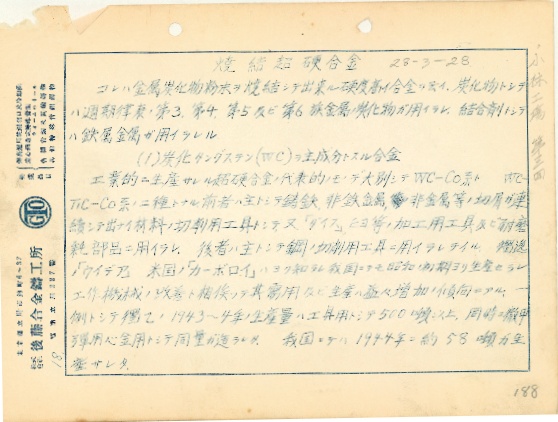 焼結超硬合金 28-3-28
コレハ金属炭化物粉末ヲ焼結シテ出来ル硬度高イ合金ヲ云イ、炭化物トシテ
ハ週期律表ノ第3、第4、第5及ビ第6族金属ノ炭化物ガ用イラレ、結合剤トシテ
ハ鉄属金属ガ用イラレル
(1) 炭化タングステン(WC)ヲ主成分トスル合金
工業的ニ生産サレル超硬合金ノ代表的ノモノデ大別シテWC-Co系ト WC-
TiC-Co系ノ二種トナル 前者ハ主トシテ鋳鉄、非鉄金属、非金属等ノ切屑ガ連
続シテ出ナイ材料ノ切削用工具トシテ又「ダイス」、ビヨ等ノ加工用工具及ビ耐摩
耗部品ニ用イラレ、後者ハ主トシテ鋼ノ切削用工具ニ用イラレテイル。獨逸
ノ「ウイデア」、米国ノ「カーボロイ」ハヨク知ラレ我国ニテモ昭和ノ初期ヨリ生産セラレ
工作機械ノ改善ト相俟ツテ其需用及ビ生産ハ益々増加ノ傾向ニアル。一
例トシテ獨乙ノ1943~4年ノ生産量ハ工具用トシテ500噸以上、同時ニ徹甲
弾用心金用トシテ同量ガ造ラレタ。 我国デハ1944年ニ約58噸ガ生
産サレタ。
小林工場 第三回
GIO
株式会社 後藤合金鑄工所
東京都立川市錦町4~57
電話立川287番
18.
188